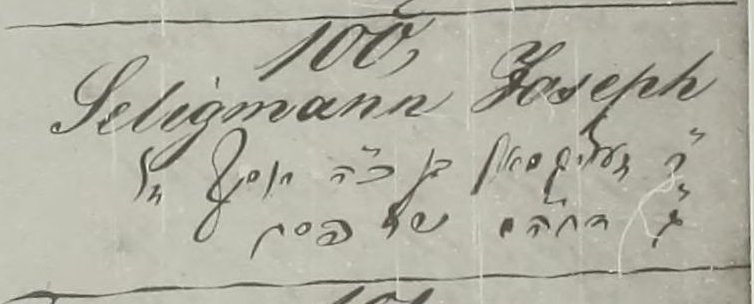 100,
Seligmann Joseph
ר' זעליגמאן בן כ"ה יוסף ז"ל
דחה"מ של פסח
101